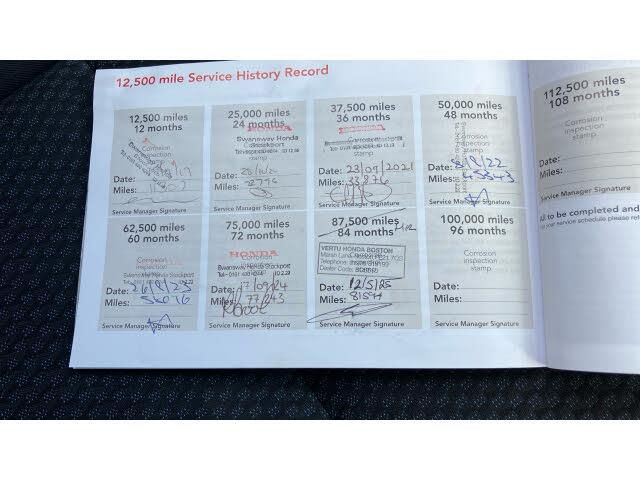 12,500 mile Service History Record
12,500 miles
12 months
Corrosion
inspection
stamp
Date:
Miles:
Service Manager Signature
25,000 miles
24 months
HONDA
Swansway Honda
Stockport
stamp
Date:
Miles:
Service Manager Signature
37,500 miles
36 months
HONDA
Corrosion
stamp
Date: 23/07/2021
Miles: 33,876
Service Manager Signature
50,000 miles
48 months
Corrosion
inspection
stamp
Date: /8/22
Miles: 45543
Service Manager Signature
62,500 miles
60 months
Corrosion
inspection
Swansway Honda Stockport
Date: 26/8/23
Miles: 56016
Service Manager Signature
75,000 miles
72 months
HONDA
Swansway Honda Stockport
Date: 17/09/24
Miles: 77243
Service Manager Signature
87,500 miles
84 months
VERTU HONDA BOSTON
Date: 12/5/25
Miles: 8154
Service Manager Signature
100,000 miles
96 months
Corrosion
inspection
stamp
Date:
Miles:
Service Manager Signature
112,500 miles
108 months
Corrosion
inspection
stamp
Date:
Miles:
Service Manager Signature
All to be completed and